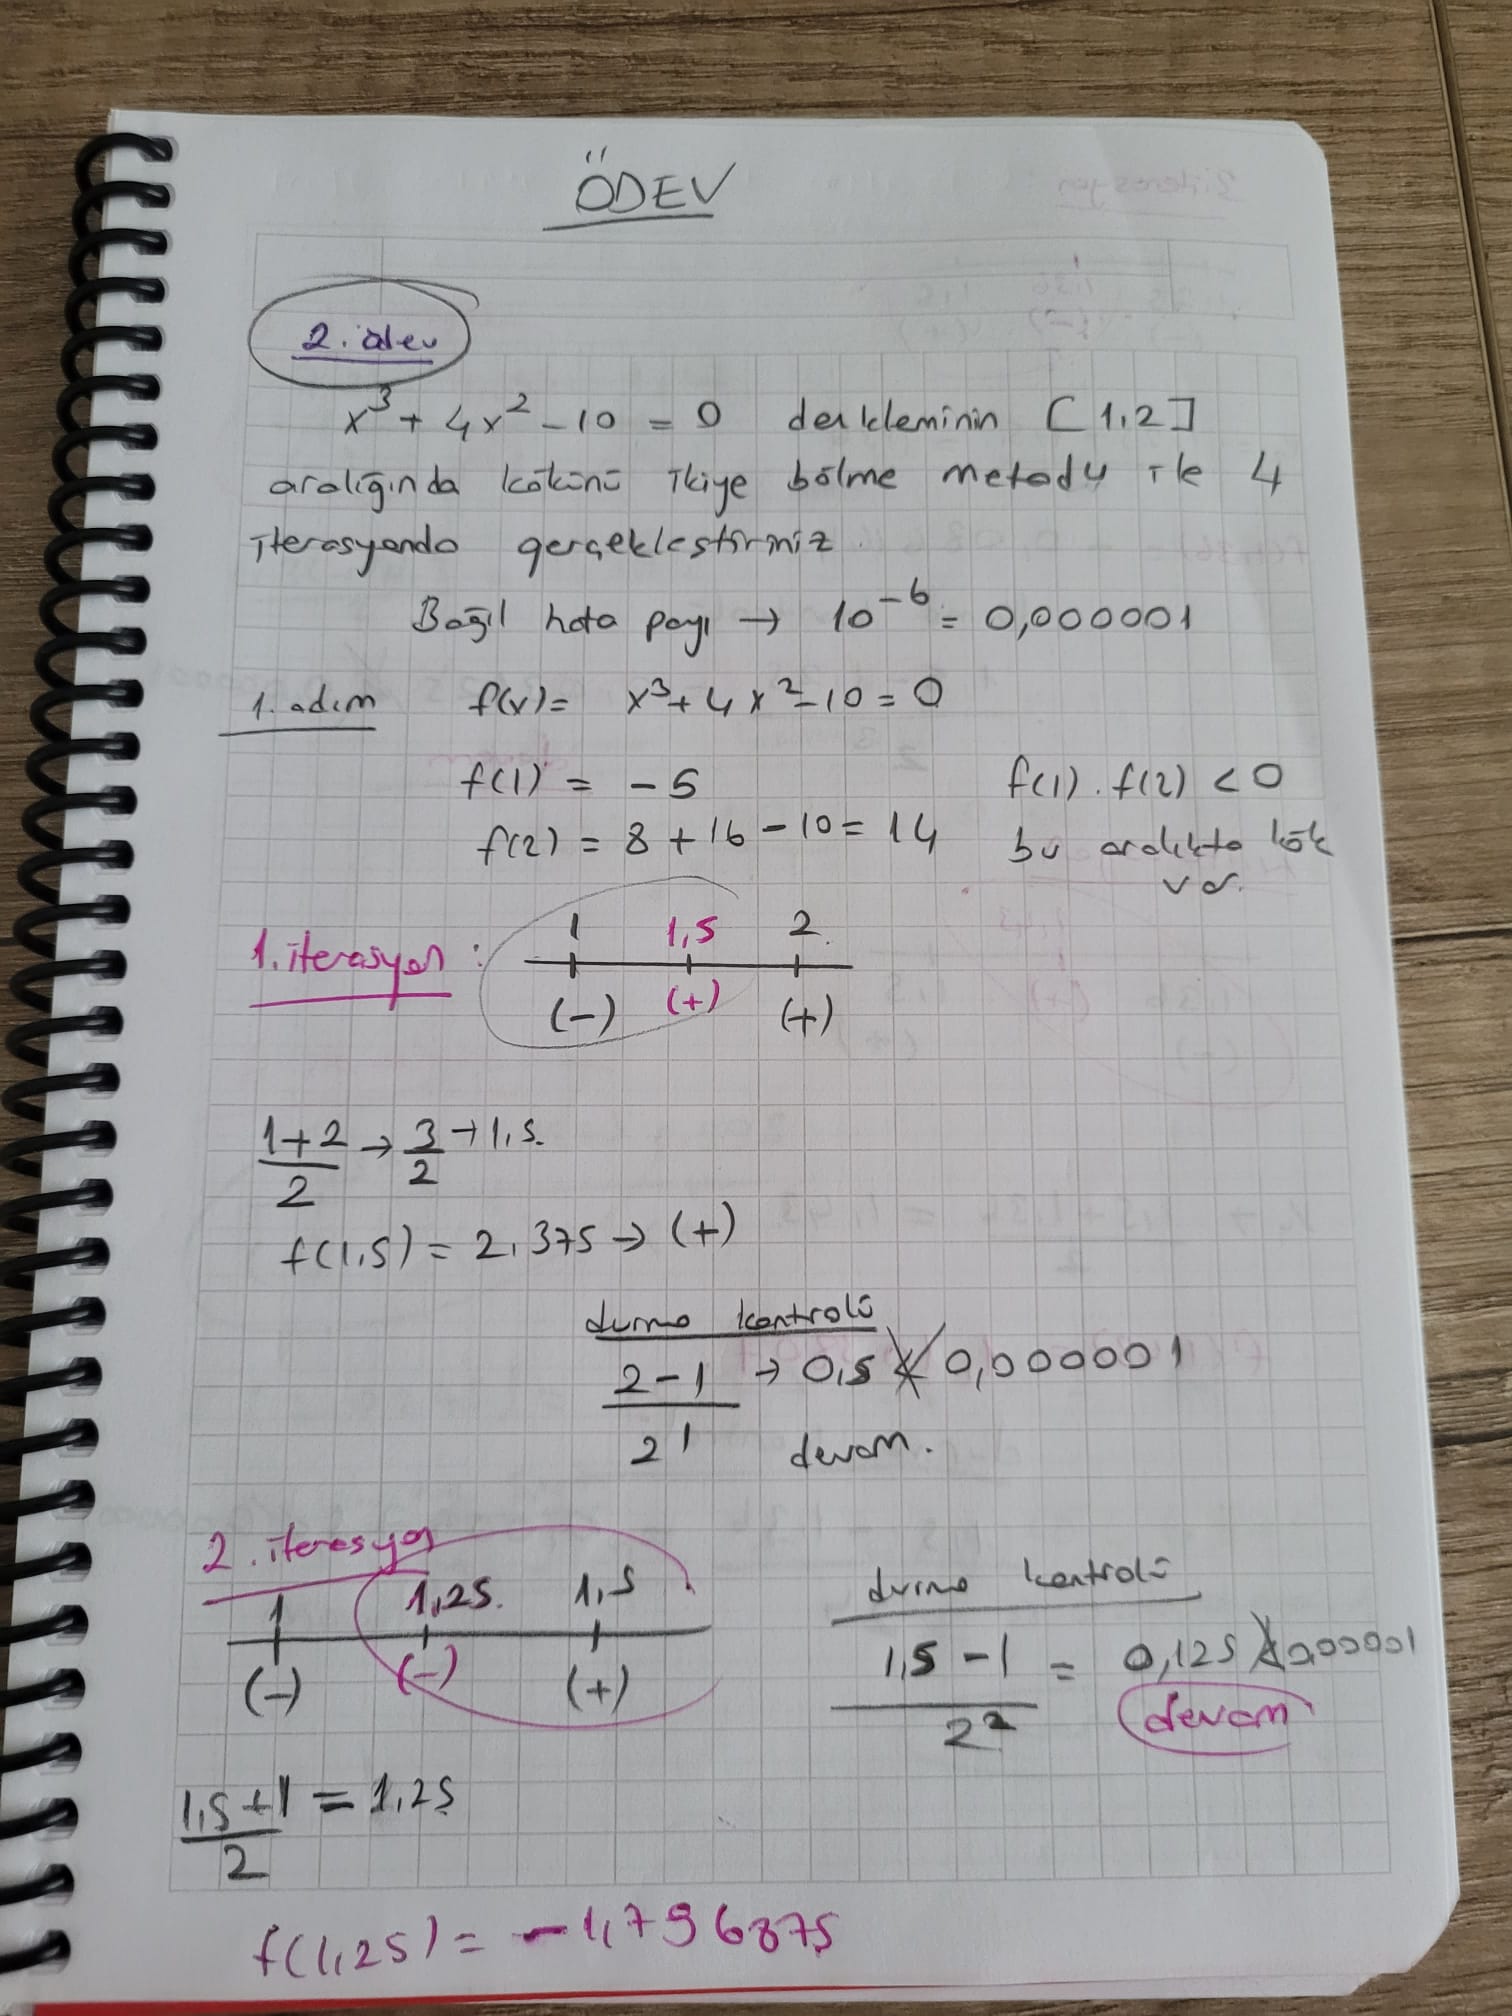 ÖDEV
2. ödev
x³ + 4x² - 10 = 0 denkleminin [1,2]
aralığında kökünü ikiye bölme metodu ile 4
iterasyonda gerçekleştirmiz
Bağıl hata payı → 10⁻⁶ = 0,000001
1. adım f(x) = x³ + 4x² - 10 = 0
f(1) = -5 f(1) . f(2) < 0
f(2) = 8 + 16 - 10 = 14 bu aralıkta kök
var.
1. iterasyon : 1 1,5 2
(-) (+) (+)
(1+2)/2 → 3/2 → 1,5.
f(1,5) = 2,375 → (+)
durma kontrolü
(2-1)/2¹ → 0,5 ≮ 0,000001
devam.
2. iterasyon
1 1,25. 1,5
(-) (-) (+)
durma kontrolü
(1,5 - 1)/2² = 0,125 ≮ 0,00001
devam
(1,5+1)/2 = 1,25
f(1,25) = -1,796875